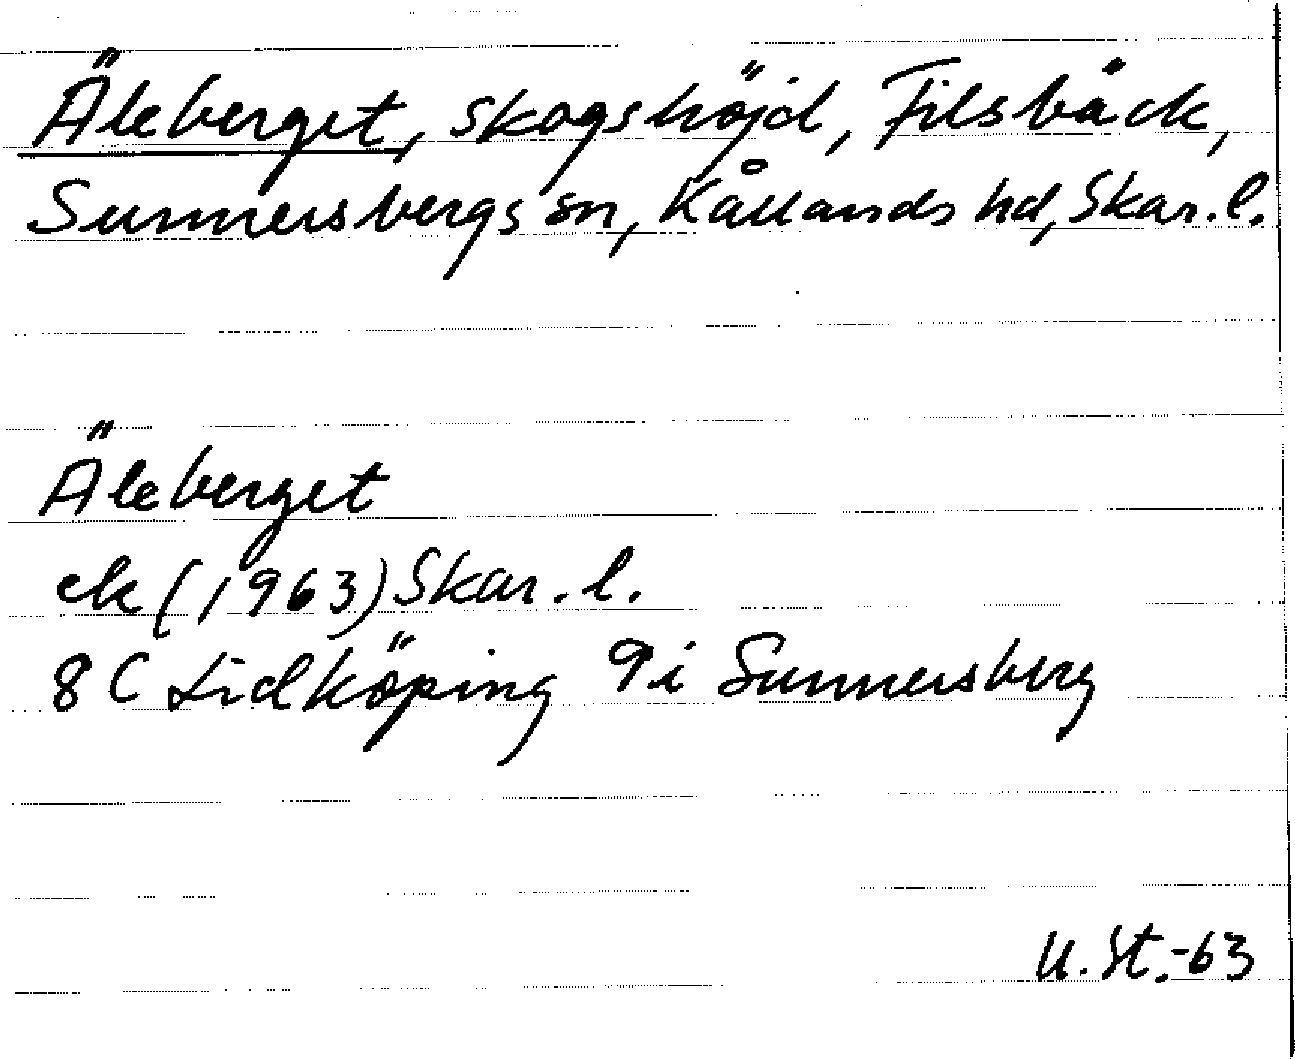 Äleberget, skogshöjd, Filsbäck,
Sunnersbergs sn, Kållands hd, Skar. l.
Äleberget
ek (1963) Skar. l.
8 C Lidköping 9i Sunnersberg
U. St. -63